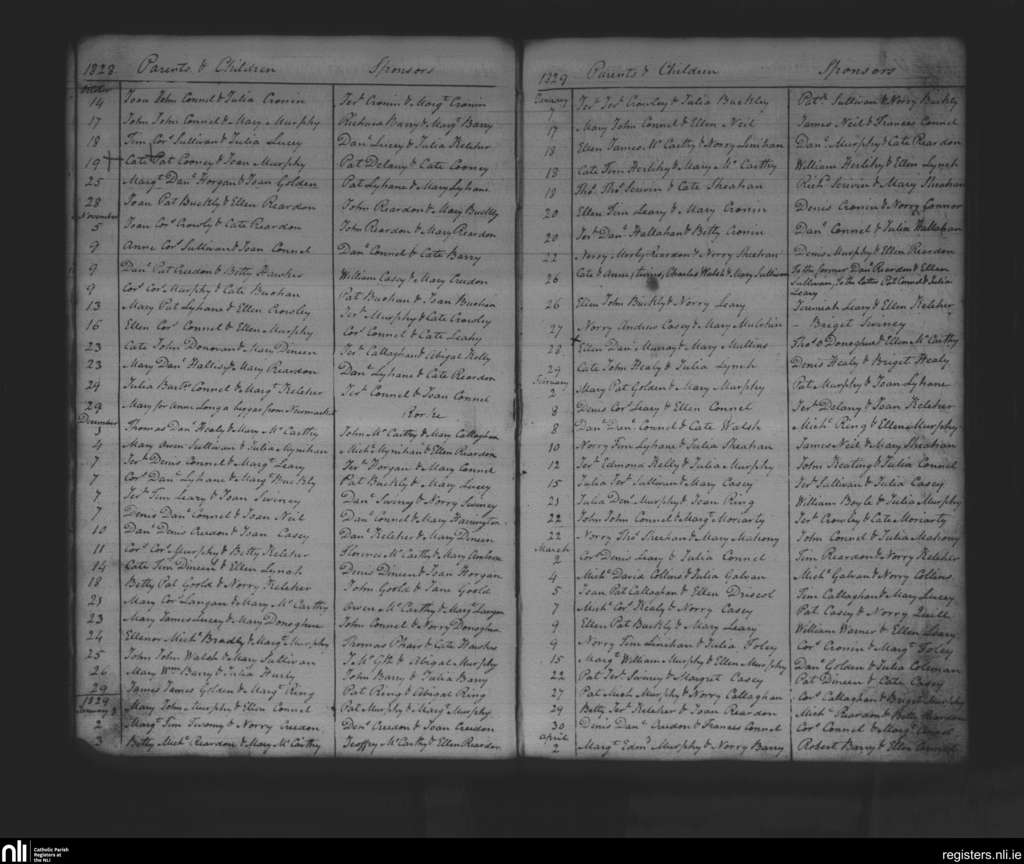 1828 Parents & Children Sponsors
October
14 Joan John Connel & Julia Cronin Jer.h Cronin & Marg.t Cronin
17 John John Connel & Mary Murphy Richard Barry & Marg.t Barry
18 Tim Cor.s Sullivan & Julia Lucey Dan.l Lucey & Julia Keleher
19 Cate Pat Cooney & Joan Murphy Pat Delany & Cate Cooney
25 Marg.t Dan.l Horgan & Joan Golden Pat Lyhane & Mary Lyhane
28 Joan Pat Buckly & Ellen Reardon John Reardon & Mary Buckly
November
5 Joan Cor.s Crowly & Cate Reardon John Reardon & Mary Reardon
9 Anne Cor.s Sullivan & Joan Connel Dan.l Connel & Cate Barry
9 Dan.l Pat Creedon & Betty Hawkes William Casey & Mary Creedon
9 Cor.s Cor.s Murphy & Cate Buohan Pat Buohan & Joan Buohan
13 Mary Pat Lyhane & Ellen Crowley Jer.h Murphy & Cate Crowley
16 Ellen Cor.s Connel & Ellen Murphy Cor.s Connel & Cate Leahy
23 Cate John Donovan & Mary Dineen Jer.h Callaghan & Abigal Kelly
23 Mary Dan.l Hallisy & Mary Reardon Dan.l Lyhane & Cate Reardon
29 Julia Bar.w Connel & Marg.t Keleher Jer.h Connel & Joan Connel
29 Mary for Anne Long a beggar from Newmarket
December
3 Thomas Dan.l Healy & Mary Mc Carthy John Mc Carthy & Mary Callaghan
4 Mary Owen Sullivan & Julia Mynihan Mich.l Mynihan & Ellen Reardon
7 Jer.h Denis Connel & Marg.t Leary Jer.h Horgan & Mary Connel
7 Cor.s Dan.l Lyhane & Marg.t Buckly Pat Buckly & Mary Lucey
7 Jer.h Tim Leary & Joan Swiney Dan.l Swiney & Norry Swiney
7 Denis Dan.l Connel & Joan Neil Dan.l Connel & Mary Harrington
10 Dan.l Denis Creedon & Joan Casey Dan.l Keleher & Mary Dineen
11 Cor.s Cor.s Murphy & Betty Keleher Florence Mc Carthy & Mary
14 Cate Tim Dineen & Ellen Lynch Denis Dineen & Joan Horgan
18 Betty Pat Goold & Norry Keleher John Goold & Jane Goold
21 Mary Cor.s Langan & Mary Mc Carthy Owen Mc Carthy & Mary Langan
23 Mary James Lucey & Mary Donoghue John Connel & Norry Donoghue
24 Ellenor Mich.l Bradly & Marg.t Murphy Thomas Phair & Cate Hawkes
25 John John Walsh & Mary Sullivan & Abigal Murphy
26 Mary W.m Barry & Julia Hurly John Barry & Julia Barry
29 James James Golden & Marg.t Ring Pat Ring & Abigal Ring
1829
January
2 Mary John Murphy & Ellen Connel Pat Murphy & Marg.t Murphy
2 Marg.t Tim Twomy & Norry Creedon Den.s Creedon & Joan Creedon
3 Betty Mich.l Reardon & Mary Mc Carthy Jeoffry Mc Carthy & Ellen Reardon
1829 Parents & Children Sponsors
January
7 Jer.h Jer.h Crowley & Julia Buckley Pat.k Sullivan & Norry Buckly
17 Mary John Connel & Ellen Neil James Neil & Frances Connel
18 Ellen James Mc Carthy & Norry Linihan Dan.l Murphy & Cate Reardon
18 Cate Tim Herlihy & Mary Mc Carthy William Herlihy & Ellen Lynch
18 Tho.s Tho.s & Cate Sheahan Rich.d & Mary Sheahan
20 Ellen Tim Leary & Mary Cronin Denis Cronin & Norry Connor
20 Jer.h Dan.l Hallahan & Betty Cronin Dan.l Connel & Julia Hallahan
22 Norry Morty Reardon & Norry Sheehan Denis Murphy & Ellen Reardon
26 Cate & Anne, twins, Charles Walsh & Mary Sullivan To the former Dan.l Reardon & Ellen
Sullivan, To the latter Pat Connel & Julia
Leary
26 Ellen John Buckly & Norry Leary Jeremiah Leary & Ellen Keleher
27 Norry Andrew Casey & Mary Mulchin – Briget Swiney
28 Ellen Dan.l Murray & Mary Mullins Tho.s O Donoghue & Ellen Mc Carthy
29 Cate John Healy & Julia Lynch Denis Healy & Briget Healy
February
2 Mary Pat Golden & Mary Murphy Pat Murphy & Joan Lyhane
8 Denis Cor.s Leary & Ellen Connel Jer.h Delany & Joan Keleher
8 Dan.l Dan.l Connel & Cate Walsh Mich.l Ring & Ellen Murphy
10 Norry Tim Lyhane & Julia Sheahan James Neil & Mary Sheahan
12 Jer.h Edmond Kelly & Julia Murphy John Keating & Julia Connel
15 Julia Jer.h Sullivan & Mary Casey Jer.h Sullivan & Julia Casey
21 Julia Den.s Murphy & Joan Ring William Boyle & Julia Murphy
22 John John Connel & Marg.t Moriarty Jer.h Crowly & Cate Moriarty
22 Norry Tho.s Sheehan & Mary Mahony John Connel & Julia Mahony
March
2 Cor.s Denis Leary & Julia Connel Tim Reardon & Norry Keleher
4 Mich.l David Collins & Julia Galvan Mich.l Galvan & Norry Collins
5 Joan Pat Callaghan & Ellen Driscol Tim Callaghan & Mary Lucey
7 Mich.l Cor.s Healy & Norry Casey Pat Casey & Norry Quill
9 Ellen Pat Buckly & Mary Leary William Warner & Ellen Leary
9 Norry Tim Linihan & Julia Foley Cor.s Cronin & Marg.t Foley
15 Marg.t William Murphy & Ellen Murphy Dan.l Golden & Julia Coleman
22 Pat Jer.h Swiney & Margret Casey Pat Dineen & Cate Casey
27 Pat Mich Murphy & Norry Callaghan Cor.s Callaghan & Briget Murphy
29 Betty Jer.h Keleher & Joan Reardon Mich.l Reardon & Betty Reardon
30 Denis Dan.l Creedon & Frances Connel Cor.s Connel & Marg.t Connel
April
2 Marg.t Edm.d Murphy & Norry Barry Robert Barry & Ellen
nli Catholic Parish
Registers at
the NLI
registers.nli.ie